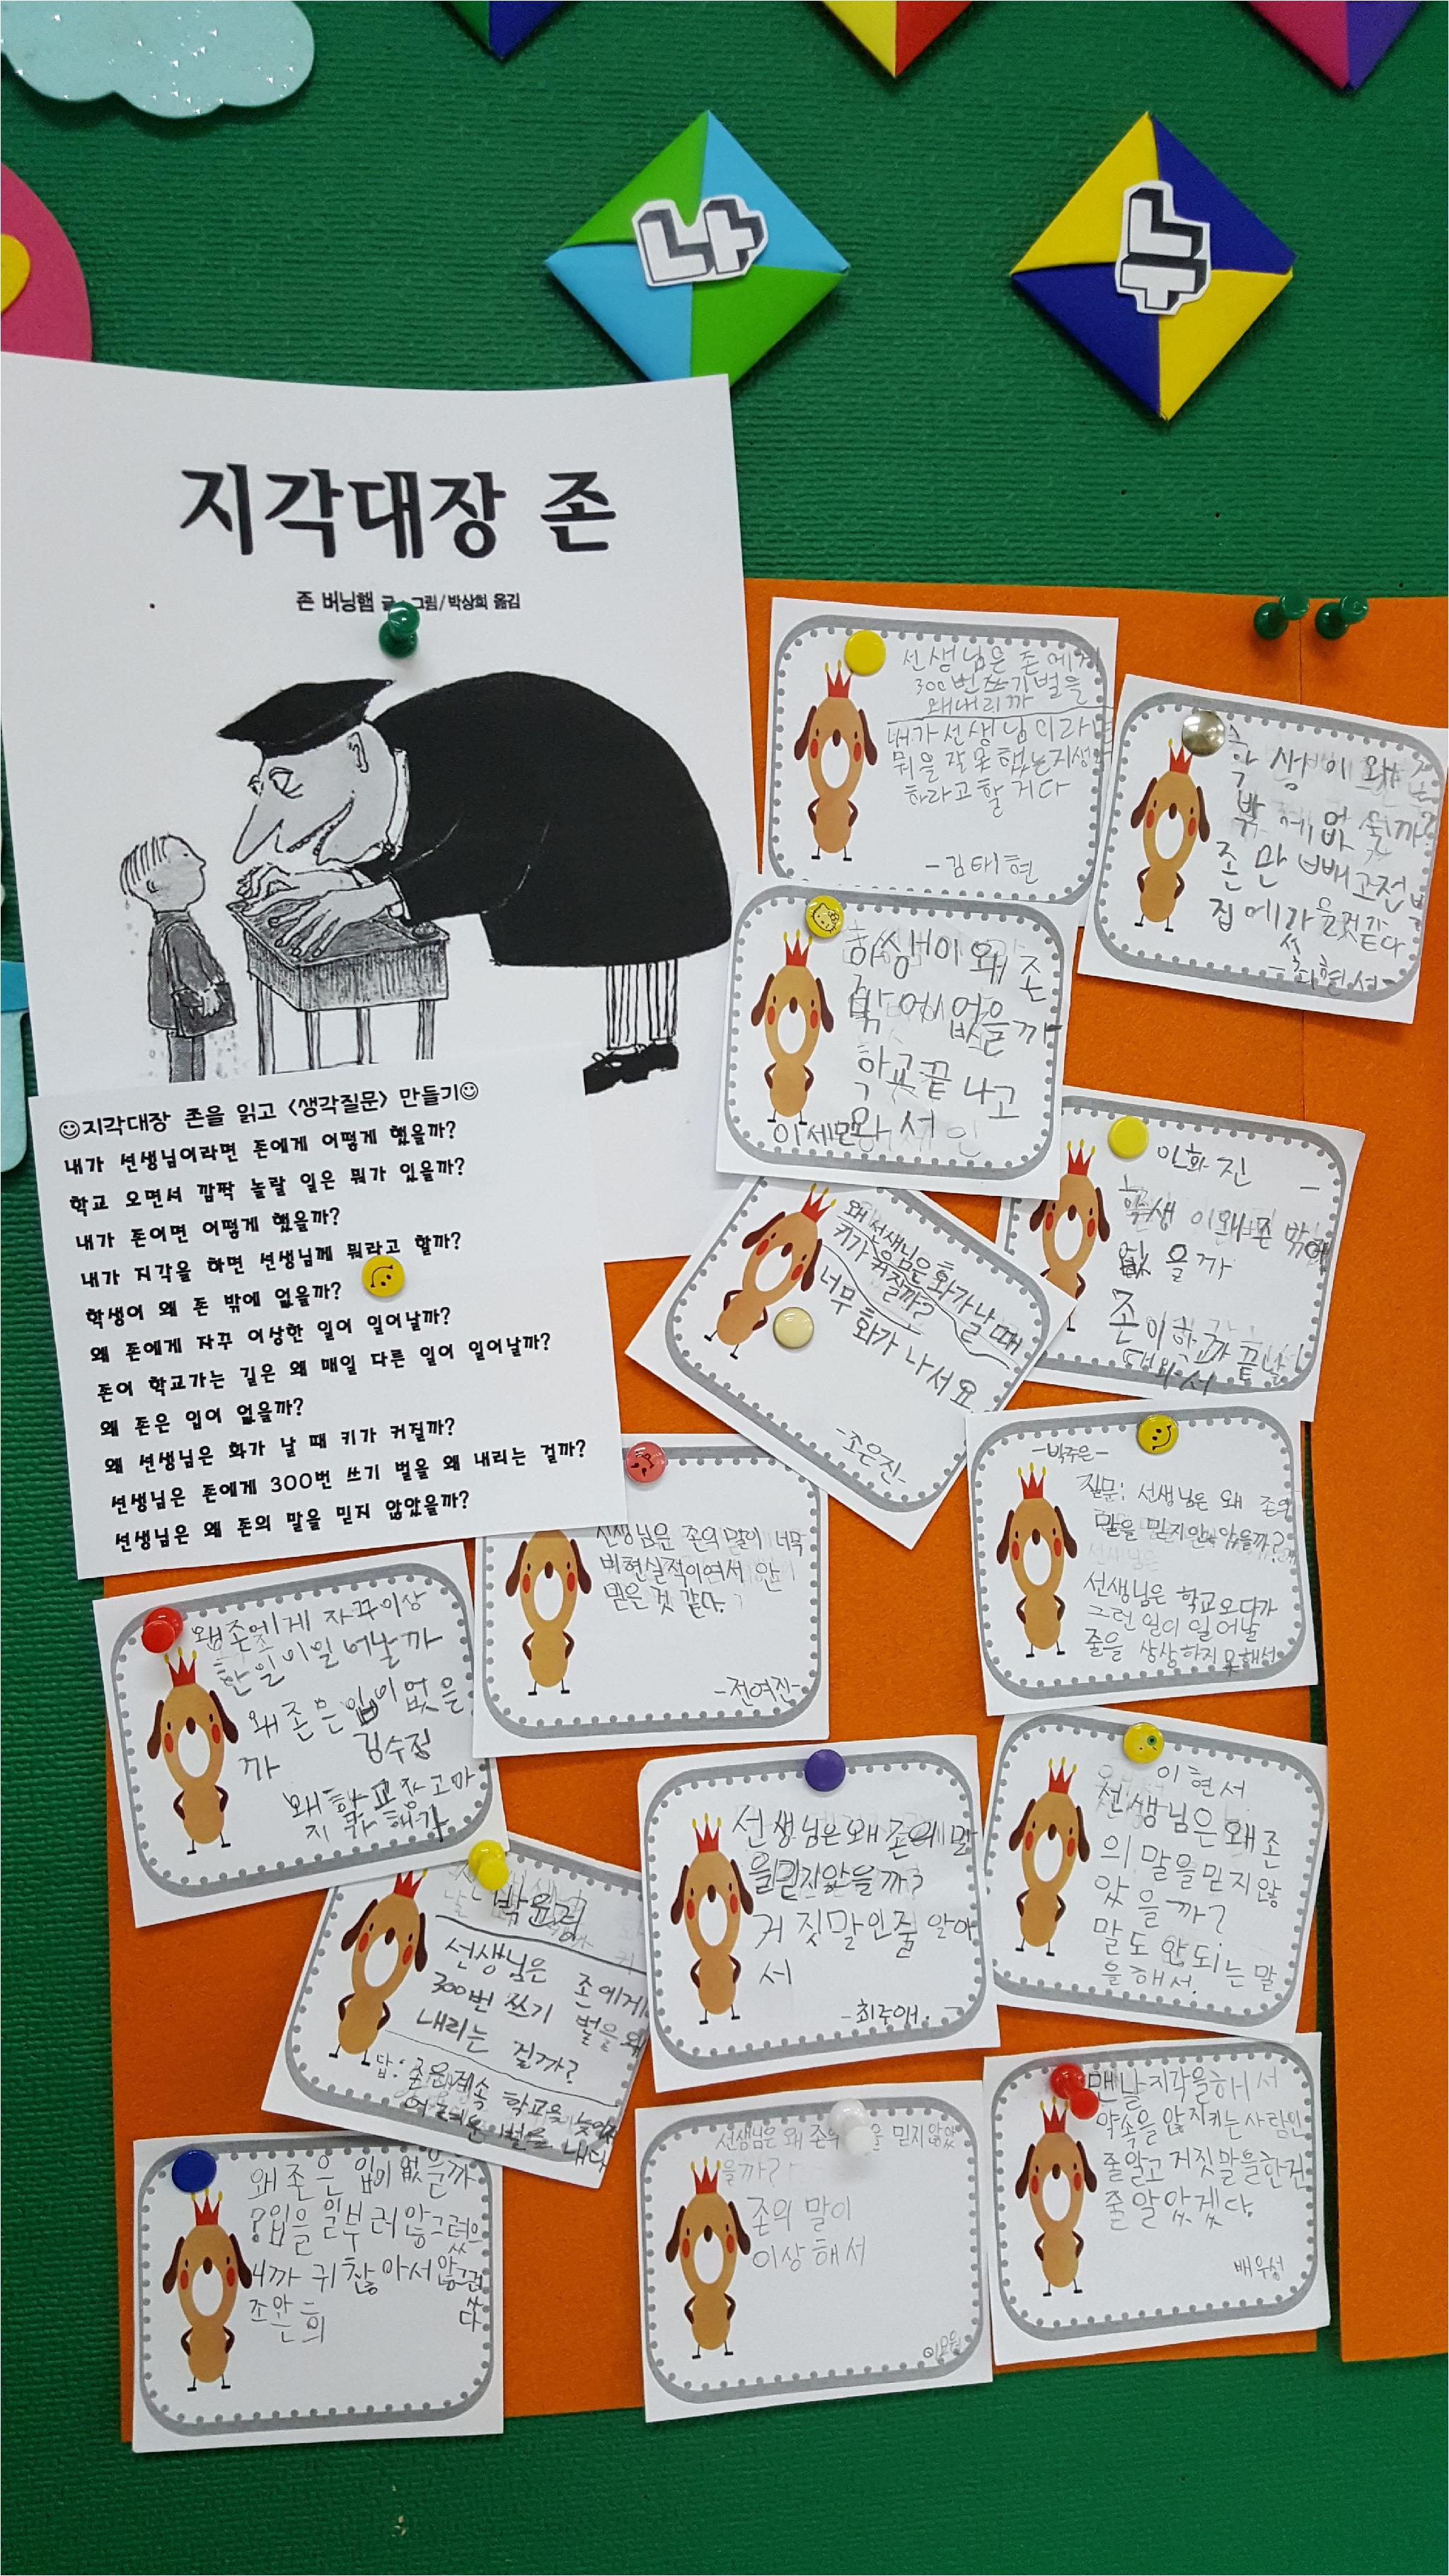 나
누
지각대장 존
존 버닝햄 글·그림/박상희 옮김
지각대장 존을 읽고 <생각질문> 만들기
내가 선생님이라면 존에게 어떻게 했을까?
학교 오면서 깜짝 놀랄 일은 뭐가 있을까?
내가 존이면 어떻게 했을까?
내가 지각을 하면 선생님께 뭐라고 할까?
학생이 왜 존 밖에 없을까?
왜 존에게 자꾸 이상한 일이 일어날까?
존이 학교가는 길은 왜 매일 다른 일이 일어날까?
왜 존은 입이 없을까?
왜 선생님은 화가 날 때 키가 커질까?
선생님은 존에게 300번 쓰기 벌을 왜 내리는 걸까?
선생님은 왜 존의 말을 믿지 않았을까?
선생님은 존에게
300번쓰기벌을
왜내리까
내가선생님이라면
뭐을 잘못했는지생각
하라고할거다
-김태현
학생이 왜 존
밖에없을까?
존만 빼고전부
집에가을것같다
-최현서-
학생이 왜 존
밖에 없을까
학교끝나고
와서
이세민
안화진
학생이왜존밖에
없을까
존이학교가끝날
때와서
왜 선생님은 화가 날 때
키가 커질까?
너무 화가 나서요
-조은진-
-박주은-
질문: 선생님은 왜 존의
말을 믿지안않을까?
선생님은 학교오다가
그런 일이 일어날
줄을 상상하지 못해서
선생님은 존의 말이 너무
비현실적이여서 안
믿은 것 같다.
-전여진-
왜존에게 자꾸이상
한일이일어날까
왜존은입이없을
까
김수정
이현서
선생님은왜존
의 말을믿지않
았을까?
말도 안되는 말
을해서.
선생님은왜존의말
을믿지않을까?
거짓말인줄 알아
서
-최주애.-
박윤리
선생님은 존에게
300번 쓰기 벌을 왜
내리는 걸까?
답: 존은계속 학교을 늦어서
맨날지각을해서
약속을 않지키는 사람인
줄알고 거짓말을한건
줄알았겠다.
배우성
선생님은 왜 존의 을 믿지않았
을까?
존의 말이
이상해서
왜존은 입이없을까
?입을 일부러않그렸으
니까 귀찮아서않그렸
다